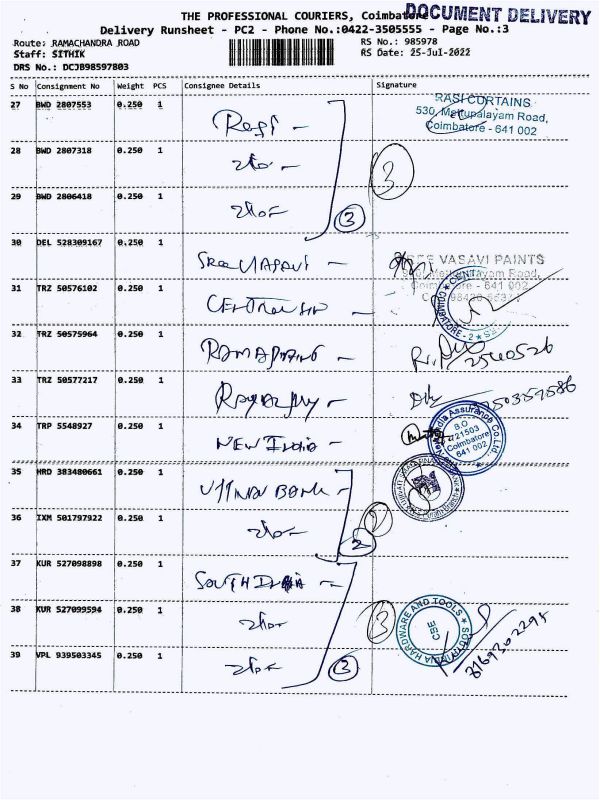 THE PROFESSIONAL COURIERS, Coimbatore
DOCUMENT DELIVERY
Delivery Runsheet - PC2 - Phone No.:0422-3505555 - Page No.:3
Route: RAMACHANDRA ROAD
RS No.: 985978
Staff: SITHIK
RS Date: 25-Jul-2022
DRS No.: DCJB98597803
S No Consignment No Weight PCS Consignee Details Signature
27 BWD 2807553 0.250 1
RASI CURTAINS
530, Mettupalayam Road,
Coimbatore - 641 002
28 BWD 2807318 0.250 1
3
29 BWD 2806418 0.250 1
3
30 DEL 528309167 0.250 1
SREE VASAVI PAINTS
Mettupalayam Road,
Coimbatore - 641 002
31 TRZ 50576102 0.250 1
COIMBATORE - 2
32 TRZ 50575964 0.250 1
33 TRZ 50577217 0.250 1
34 TRP 5548927 0.250 1 NEW INDIA
New India Assurance Co. Ltd.
B.O
721503
Coimbatore
641 002
35 HRD 383480661 0.250 1 UJJIVAN BANK
36 IXM 501797922 0.250 1
2
37 KUR 527098898 0.250 1 SOUTH INDIA
38 KUR 527099594 0.250 1
3
SOUTH INDIA HARDWARE AND TOOLS
CBE
8169302295
39 VPL 939503345 0.250 1
3